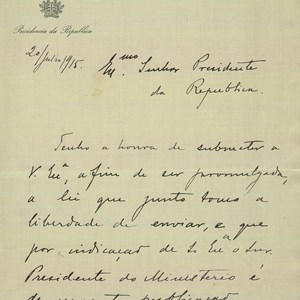 Presidencia da Republica
20/Julho/915.
Ex.mo Senhor Presidente
da Republica.
Tenho a honra de submeter a
V. Ex.a, a fim de ser promulgada,
a lei que junto tomo a
liberdade de enviar, e que
por indicação de S. Ex.a o Snr.
Presidente do Ministerio é
de urgente publicação